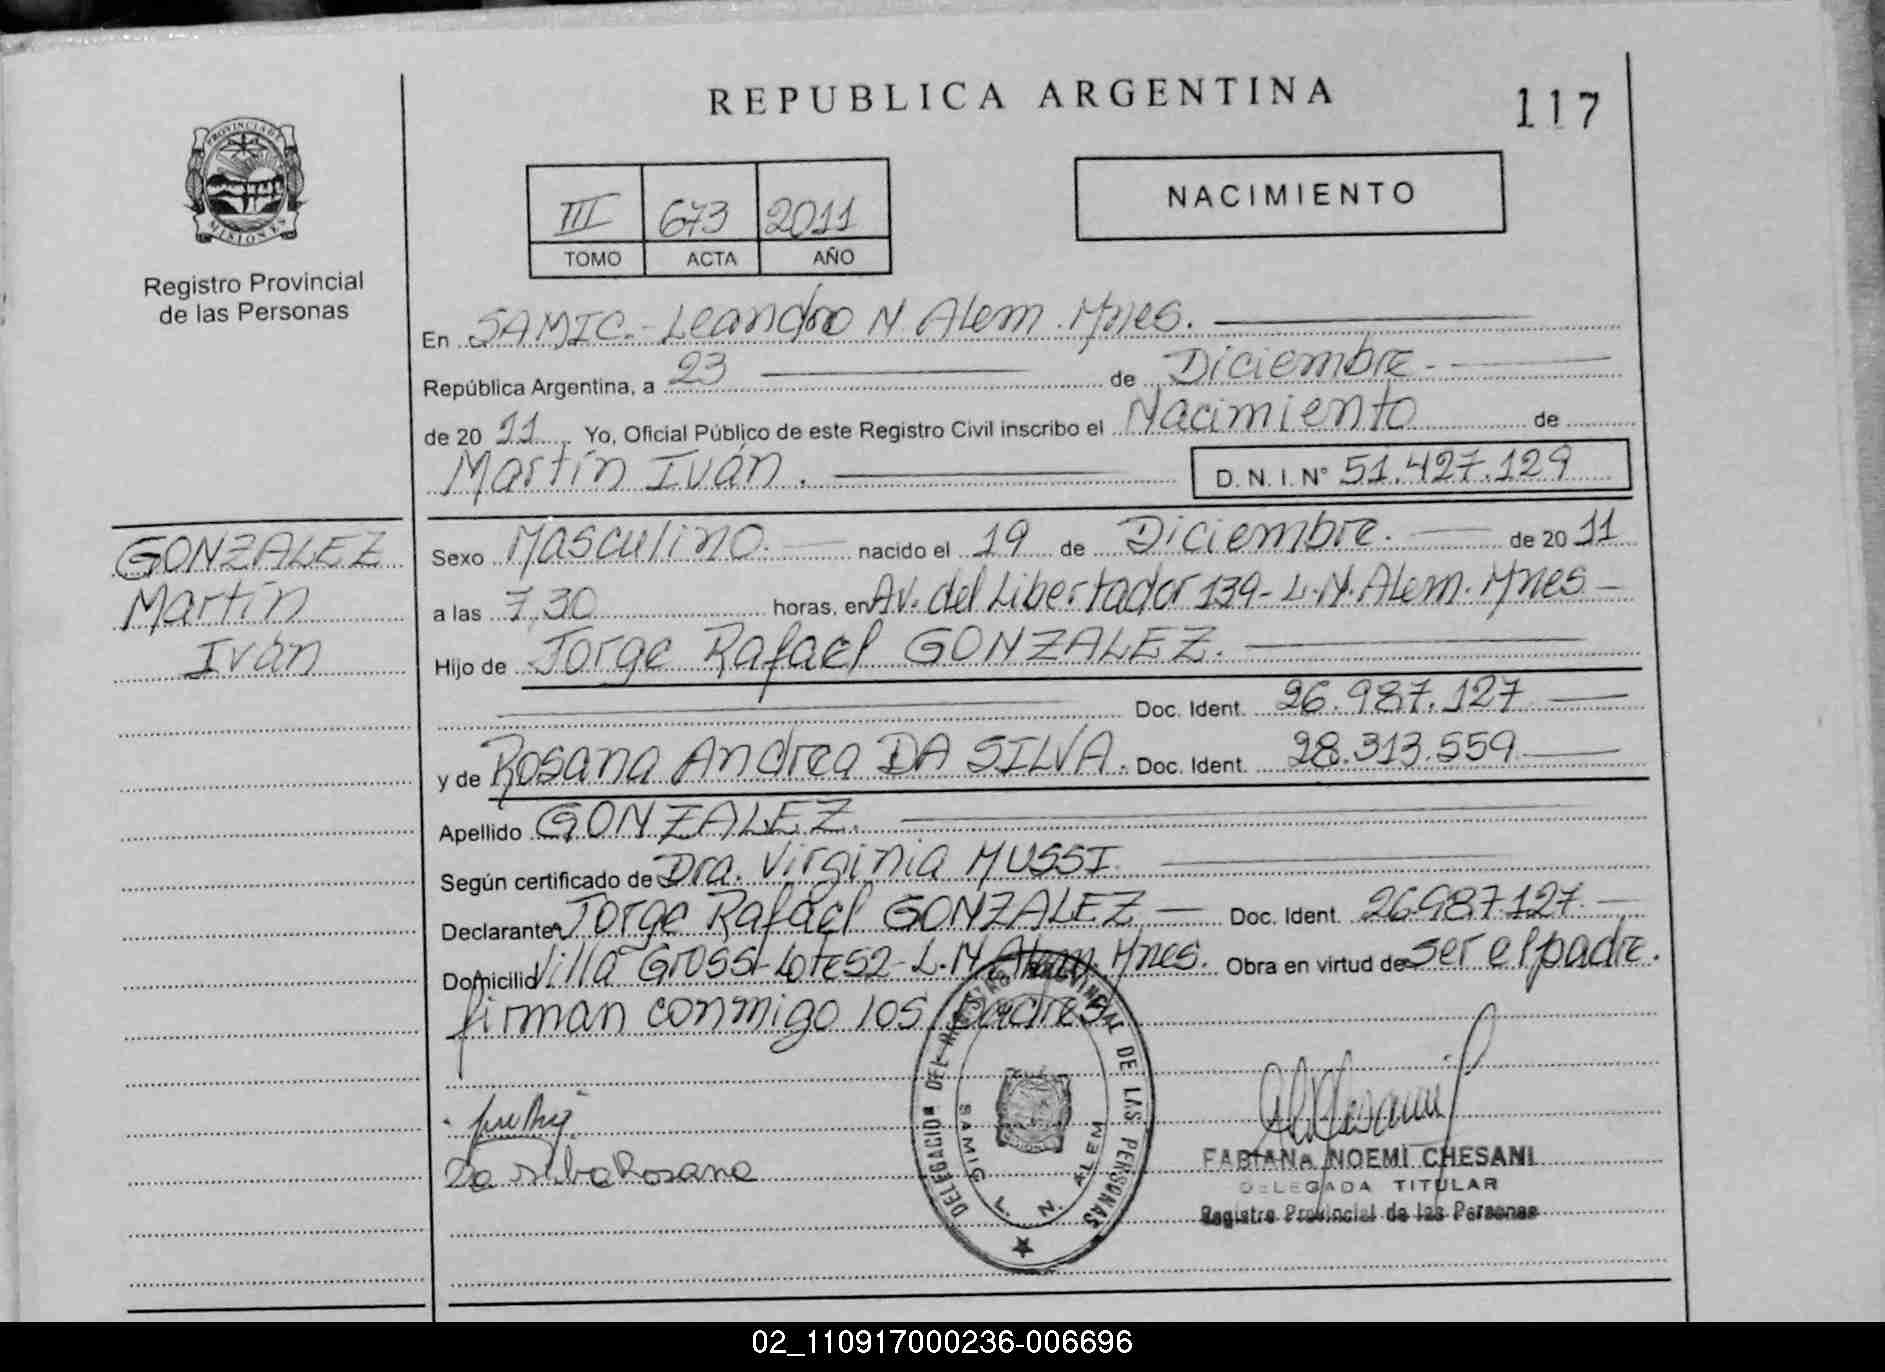 REPUBLICA ARGENTINA
117
PROVINCIA DE
MISIONES
Registro Provincial
de las Personas
III 673 2011
TOMO ACTA AÑO
NACIMIENTO
En SAMIC.- Leandro N. Alem. Mnes.
República Argentina, a 23 de Diciembre.-
de 20 11. Yo, Oficial Público de este Registro Civil inscribo el Nacimiento de
Martín Iván. D. N. I. N° 51.427.129
GONZALEZ
Martín
Iván
Sexo Masculino. nacido el 19 de Diciembre. de 20 11
a las 7,30 horas, en Av. del Libertador 139- L.N. Alem. Mnes -
Hijo de Jorge Rafael GONZALEZ.
Doc. Ident. 26.987.127
y de Rosana Andrea DA SILVA. Doc. Ident. 28.313.559
Apellido GONZALEZ.
Según certificado de Dra. Virginia MUSSI.
Declarante Jorge Rafael GONZALEZ Doc. Ident. 26.987.127.
Domicilio Villa Gross- Lote 52- L.N. Alem. Mnes. Obra en virtud de ser el padre.
firman conmigo los padres
DELEGACION DEL REGISTRO PROVINCIAL DE LAS PERSONAS
SAMIC L. N. ALEM
Da silva Rosana
FABIANA NOEMI CHESANI
DELEGADA TITULAR
Registro Provincial de las Personas
02_110917000236-006696